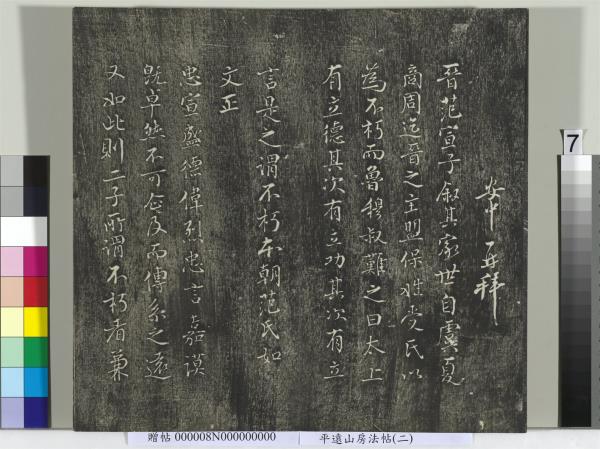 再拜
晉范宣子叙其家世自虞夏
商周迄晉之主盟保姓受氏以
為不朽而魯穆叔難之曰太上
有立德其次有立功其次有立
言是之謂不朽本朝范氏如
文正
忠宣盛德偉烈忠言嘉謨
既卓然不可企及而傳系之遠
又如此則二子所謂不朽者兼
7
贈帖 000008N000000000 平遠山房法帖(二)